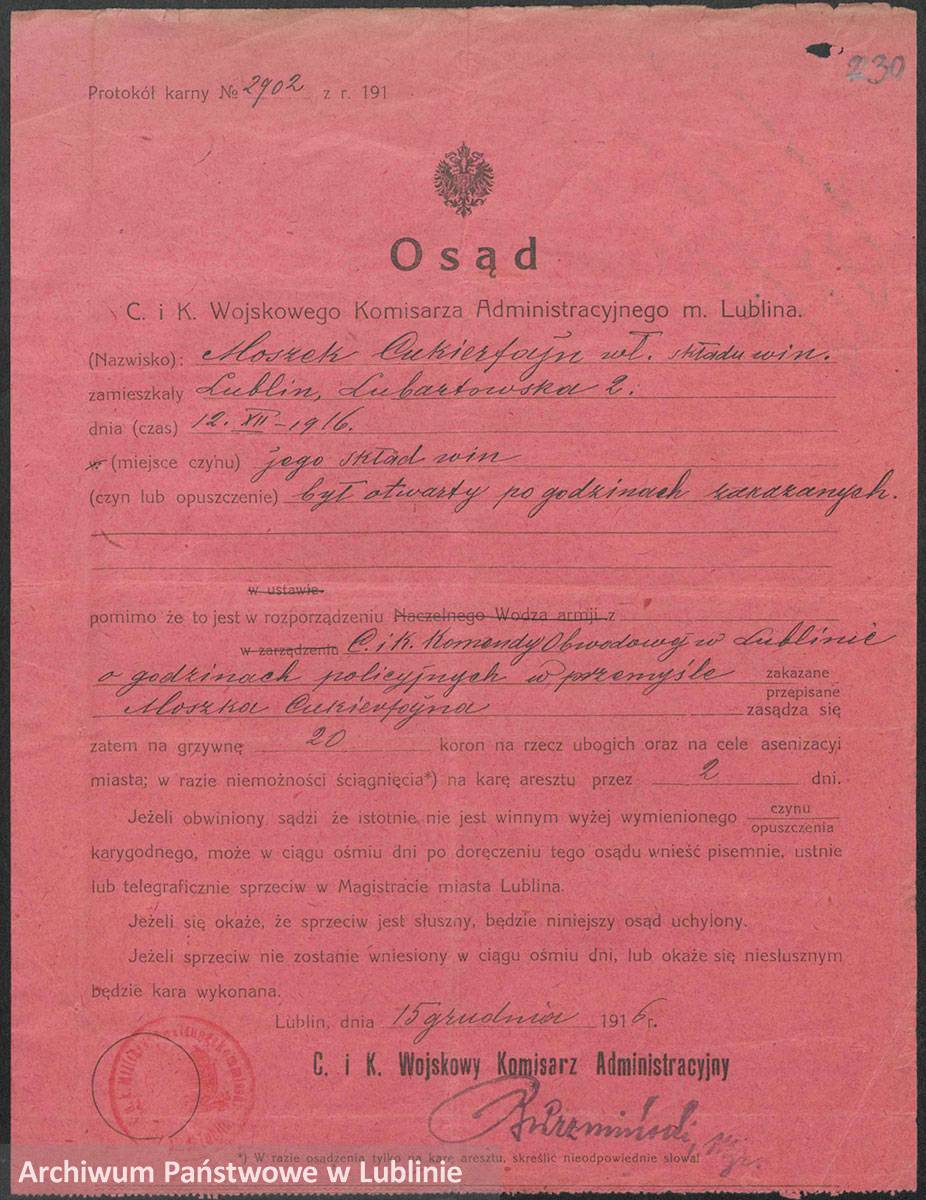 230
Protokół karny № 2902 z r. 191
Osąd
C. i K. Wojskowego Komisarza Administracyjnego m. Lublina.
(Nazwisko): Moszek Cukierfajn wł. składu win.
zamieszkały Lublin, Lubartowska 2.
dnia (czas) 12. XII - 1916.
w (miejsce czynu) jego skład win
(czyn lub opuszczenie) był otwarty po godzinach zakazanych.
w ustawie
pomimo że to jest w rozporządzeniu Naczelnego Wodza armji z
w zarządzeniu C. i K. Komendy Obwodowej w Lublinie
o godzinach policyjnych w przemyśle zakazane
przepisane
Moszka Cukierfajna zasądza się
zatem na grzywnę 20 koron na rzecz ubogich oraz na cele asenizacyi
miasta; w razie niemożności ściągnięcia*) na karę aresztu przez 2 dni.
Jeżeli obwiniony sądzi że istotnie nie jest winnym wyżej wymienionego czynu
opuszczenia
karygodnego, może w ciągu ośmiu dni po doręczeniu tego osądu wnieść pisemnie, ustnie
lub telegraficznie sprzeciw w Magistracie miasta Lublina.
Jeżeli się okaże, że sprzeciw jest słuszny, będzie niniejszy osąd uchylony.
Jeżeli sprzeciw nie zostanie wniesiony w ciągu ośmiu dni, lub okaże się niesłusznym
będzie kara wykonana.
Lublin, dnia 15 grudnia 1916 r.
C. i K. Wojskowy Komisarz Administracyjny
*) W razie osądzenia tylko na karę aresztu, skreślic nieodpowiednie słowa!
Archiwum Państwowe w Lublinie